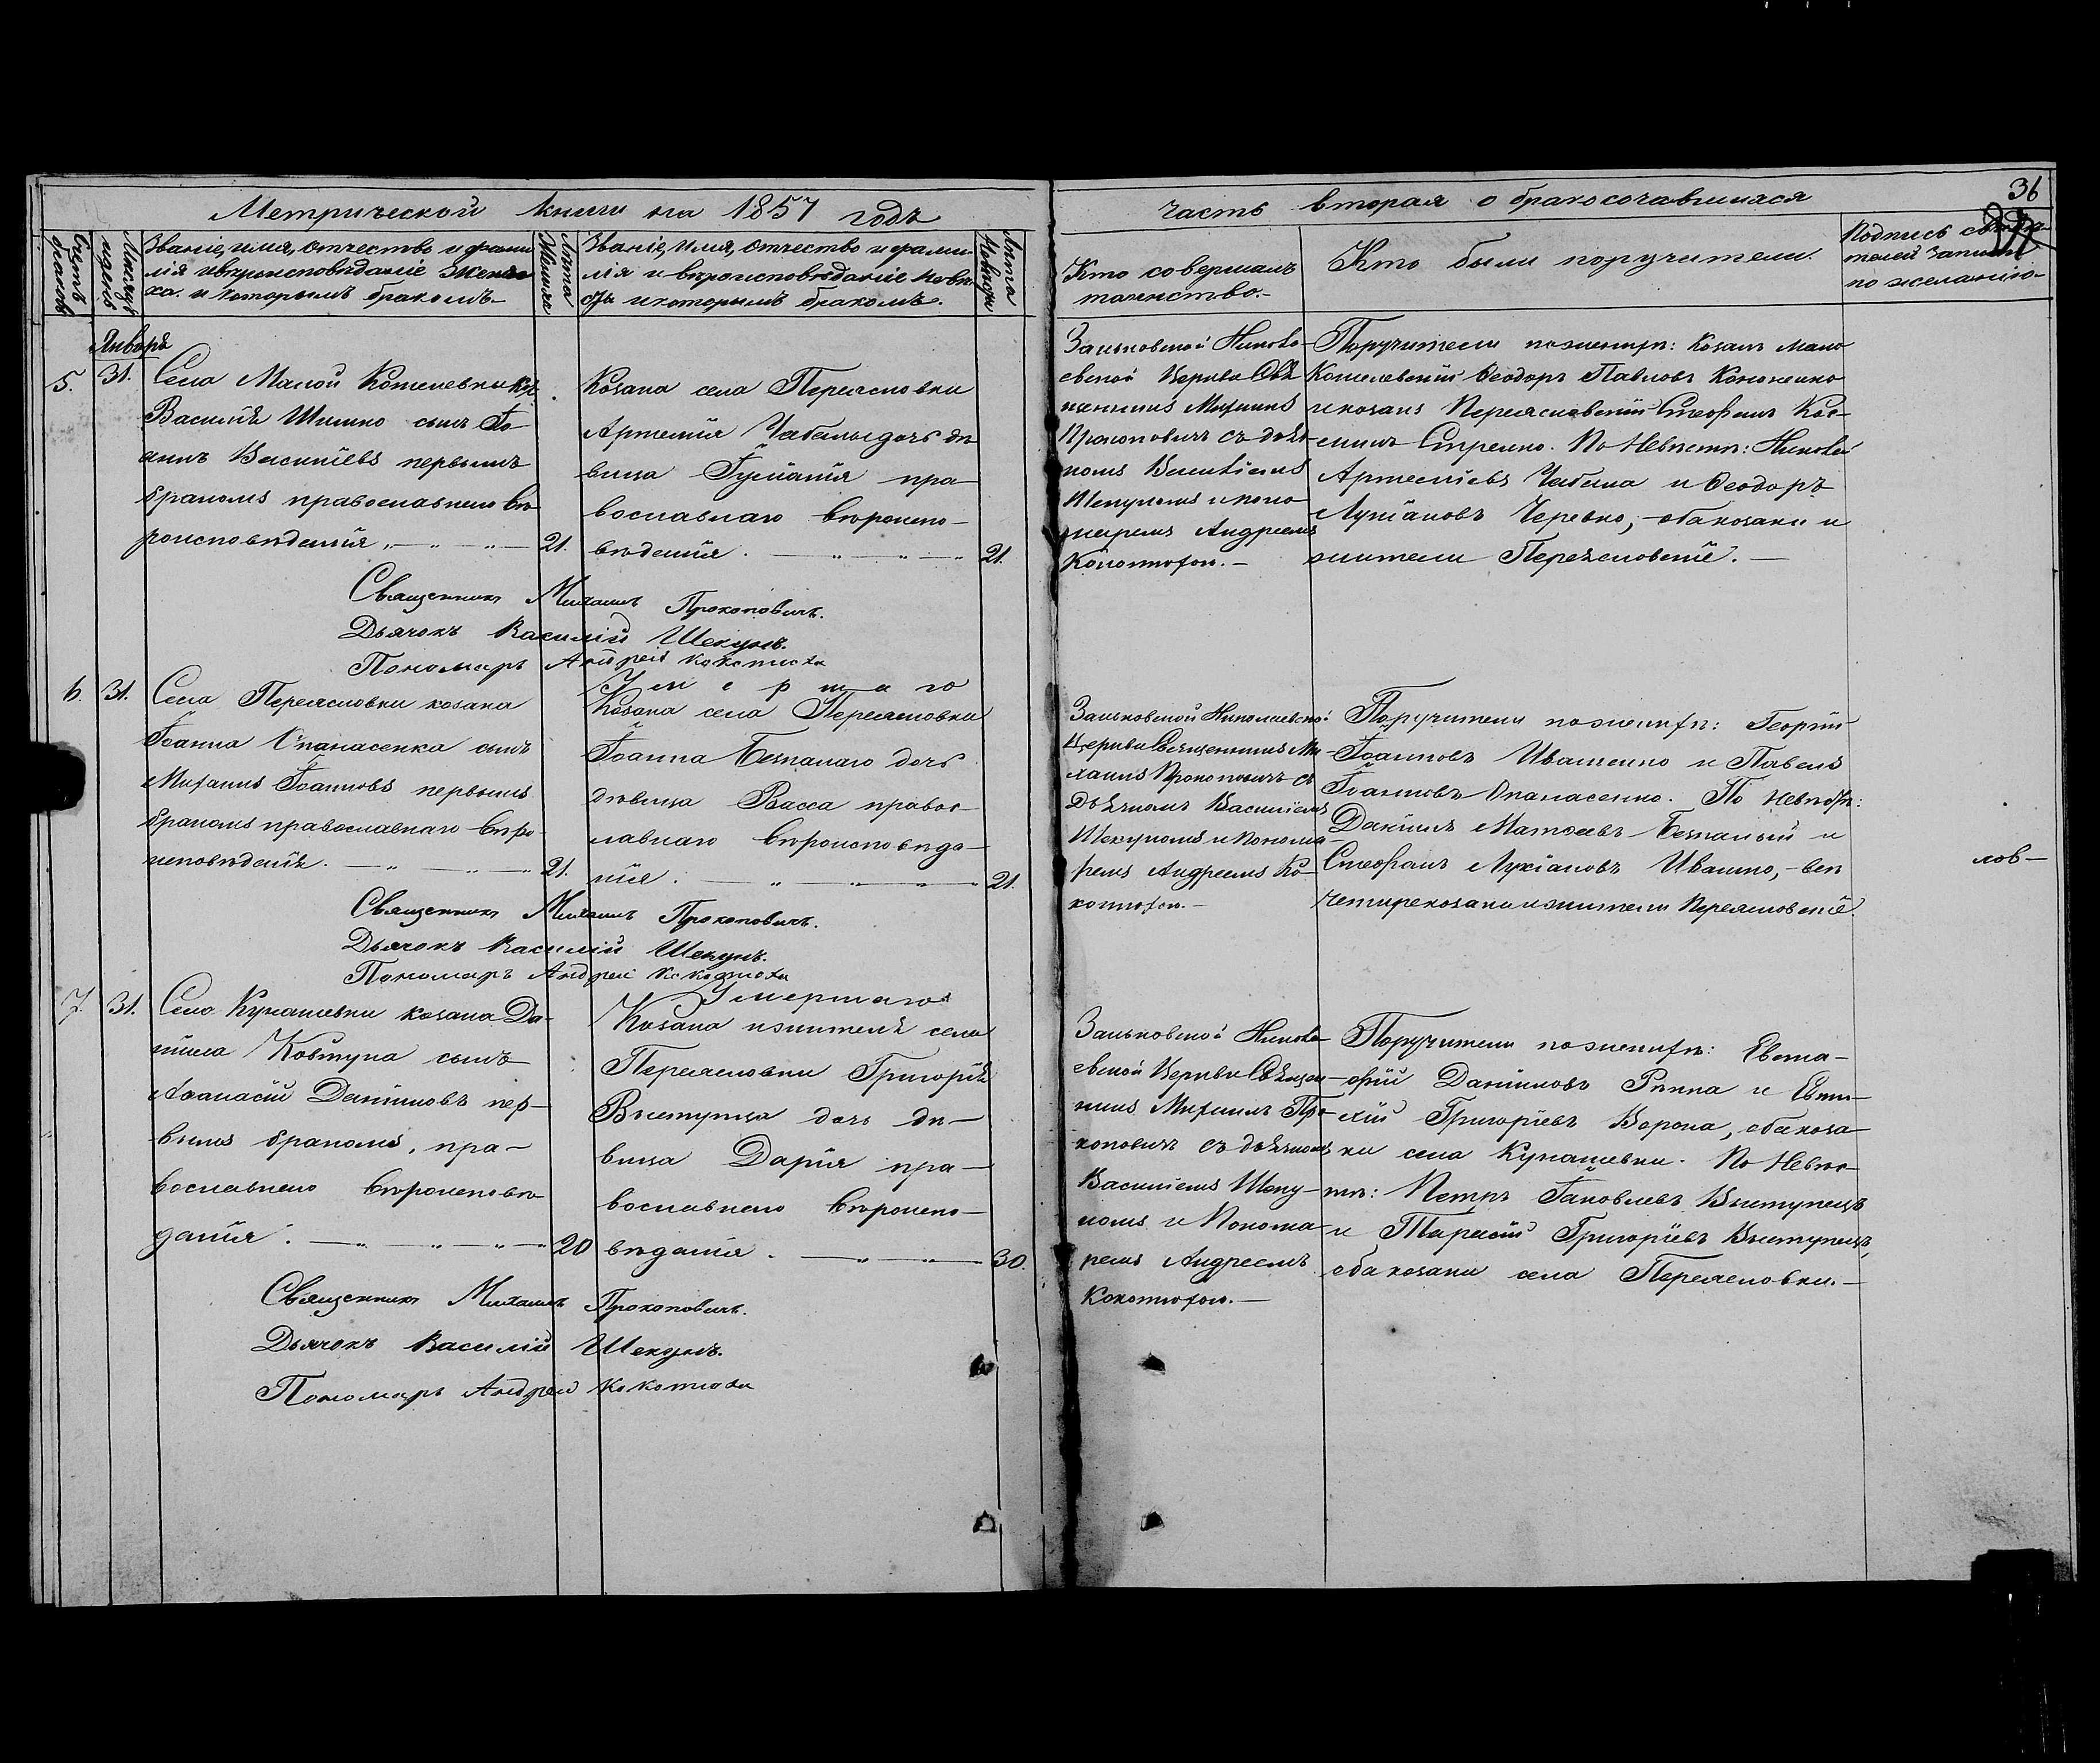 Метрической книги на 1857 годъ
часть вторая о бракосочавшихся
36
Счетъ браковъ
Мѣсяцъ и день
Званіе, имя, отчество и фами
лія и вѣроисповѣданіе жени
ха. и которымъ бракомъ
Лѣта Жениха
Званіе, имя, отчество и фами-
лія и вѣроисповѣданіе невѣ
сты и которымъ бракомъ.
Лѣта Невѣсты
Кто совершалъ
таинство.-
Кто были поручители.
Подпись свидѣ-
телей записи
по желанію-
Январь
5.
31.
Села Малой Кошелевки Коз.
Василія Шишко сынъ Іо-
аннъ Василіевъ первымъ
бракомъ православнаго вѣ
роисповѣданія
21.
Козака села Переясловки
Артемія Чабалы дочь дѣ
вица Іуліанія пра-
вославнаго вѣроиспо-
вѣданія.
21.
Заньковской Никола-
евской Церкви Свя
щенникъ Михаилъ
Прокоповичъ съ дья
комъ Василіемъ
Шекуномъ и поно-
маремъ Андреемъ
Кокотюхою.-
Поручители по женихѣ: козакъ мало
Кошелевскій Ѳеодоръ Павловъ Кононенко
и козакъ Переясловскій Стефанъ Кос-
минъ Стрелко. По Невѣстѣ: Николай
Артеміевъ Чабала и Ѳеодоръ
Лукіановъ Черевко, - оба козаки и
жители Переясловскіе.-
Священникъ Михаилъ Прокоповичъ.
Дьячокъ Василій Шекунъ.
Пономарь Андрей Кокотюха
6.
31.
Села Переясловки козака
Іоанна Опанасенка сынъ
Михаилъ Іоанновъ первымъ
бракомъ православнаго вѣро
исповѣданія.
21.
Умершаго
Козака села Переясловки
Іоанна Безпалаго дочь
дѣвица Васса правос-
лавнаго вѣроисповѣда-
нія.
21.
Заньковской Николаевской
Церкви Священникъ Ми-
хаилъ Прокоповичъ съ
Дьячкомъ Василіемъ
Шекуномъ и Понома-
ремъ Андреемъ Ко-
котюхою.-
Поручители по женихѣ: Георгій
Іоанновъ Ивашенко и Павелъ
Іоанновъ Опанасенко. По Невѣстѣ:
Даніилъ Матѳеевъ Безпалый и
Стефанъ Лукіановъ Ивашко, - всѣ
четыре козаки и жители Переясловскіе.
лов-
Священникъ Михаилъ Прокоповичъ.
Дьячокъ Василій Шекунъ.
Пономарь Андрей Кокотюха
7.
31.
Села Кукашевки козака Да-
ніила Ковтуна сынъ
Аѳанасій Даніиловъ пер-
вымъ бракомъ, пра-
вославнаго вѣроисповѣ
данія.
20
Умершаго
Козака и жителя села
Переясловки Григорія
Выступца дочь дѣ-
вица Дарія пра-
вославнаго вѣроиспо-
вѣданія.
30.
Заньковской Никола-
евской Церкви Священ-
никъ Михаилъ Про-
коповичъ съ дьячкомъ
Василіемъ Шеку-
номъ и Понома-
ремъ Андреемъ
Кокотюхою.-
Поручители по женихѣ: Евста-
фій Даніиловъ Рѣпка и Евти-
хій Григоріевъ Ворона, оба коза
ки села Кукашевки. По Невѣс-
тѣ: Петръ Іаковлевъ Выступецъ
и Тарасій Григоріевъ Выступецъ,
оба козаки села Переясловки.-
Священникъ Михаилъ Прокоповичъ.
Дьячокъ Василій Шекунъ.
Пономарь Андрей Кокотюха